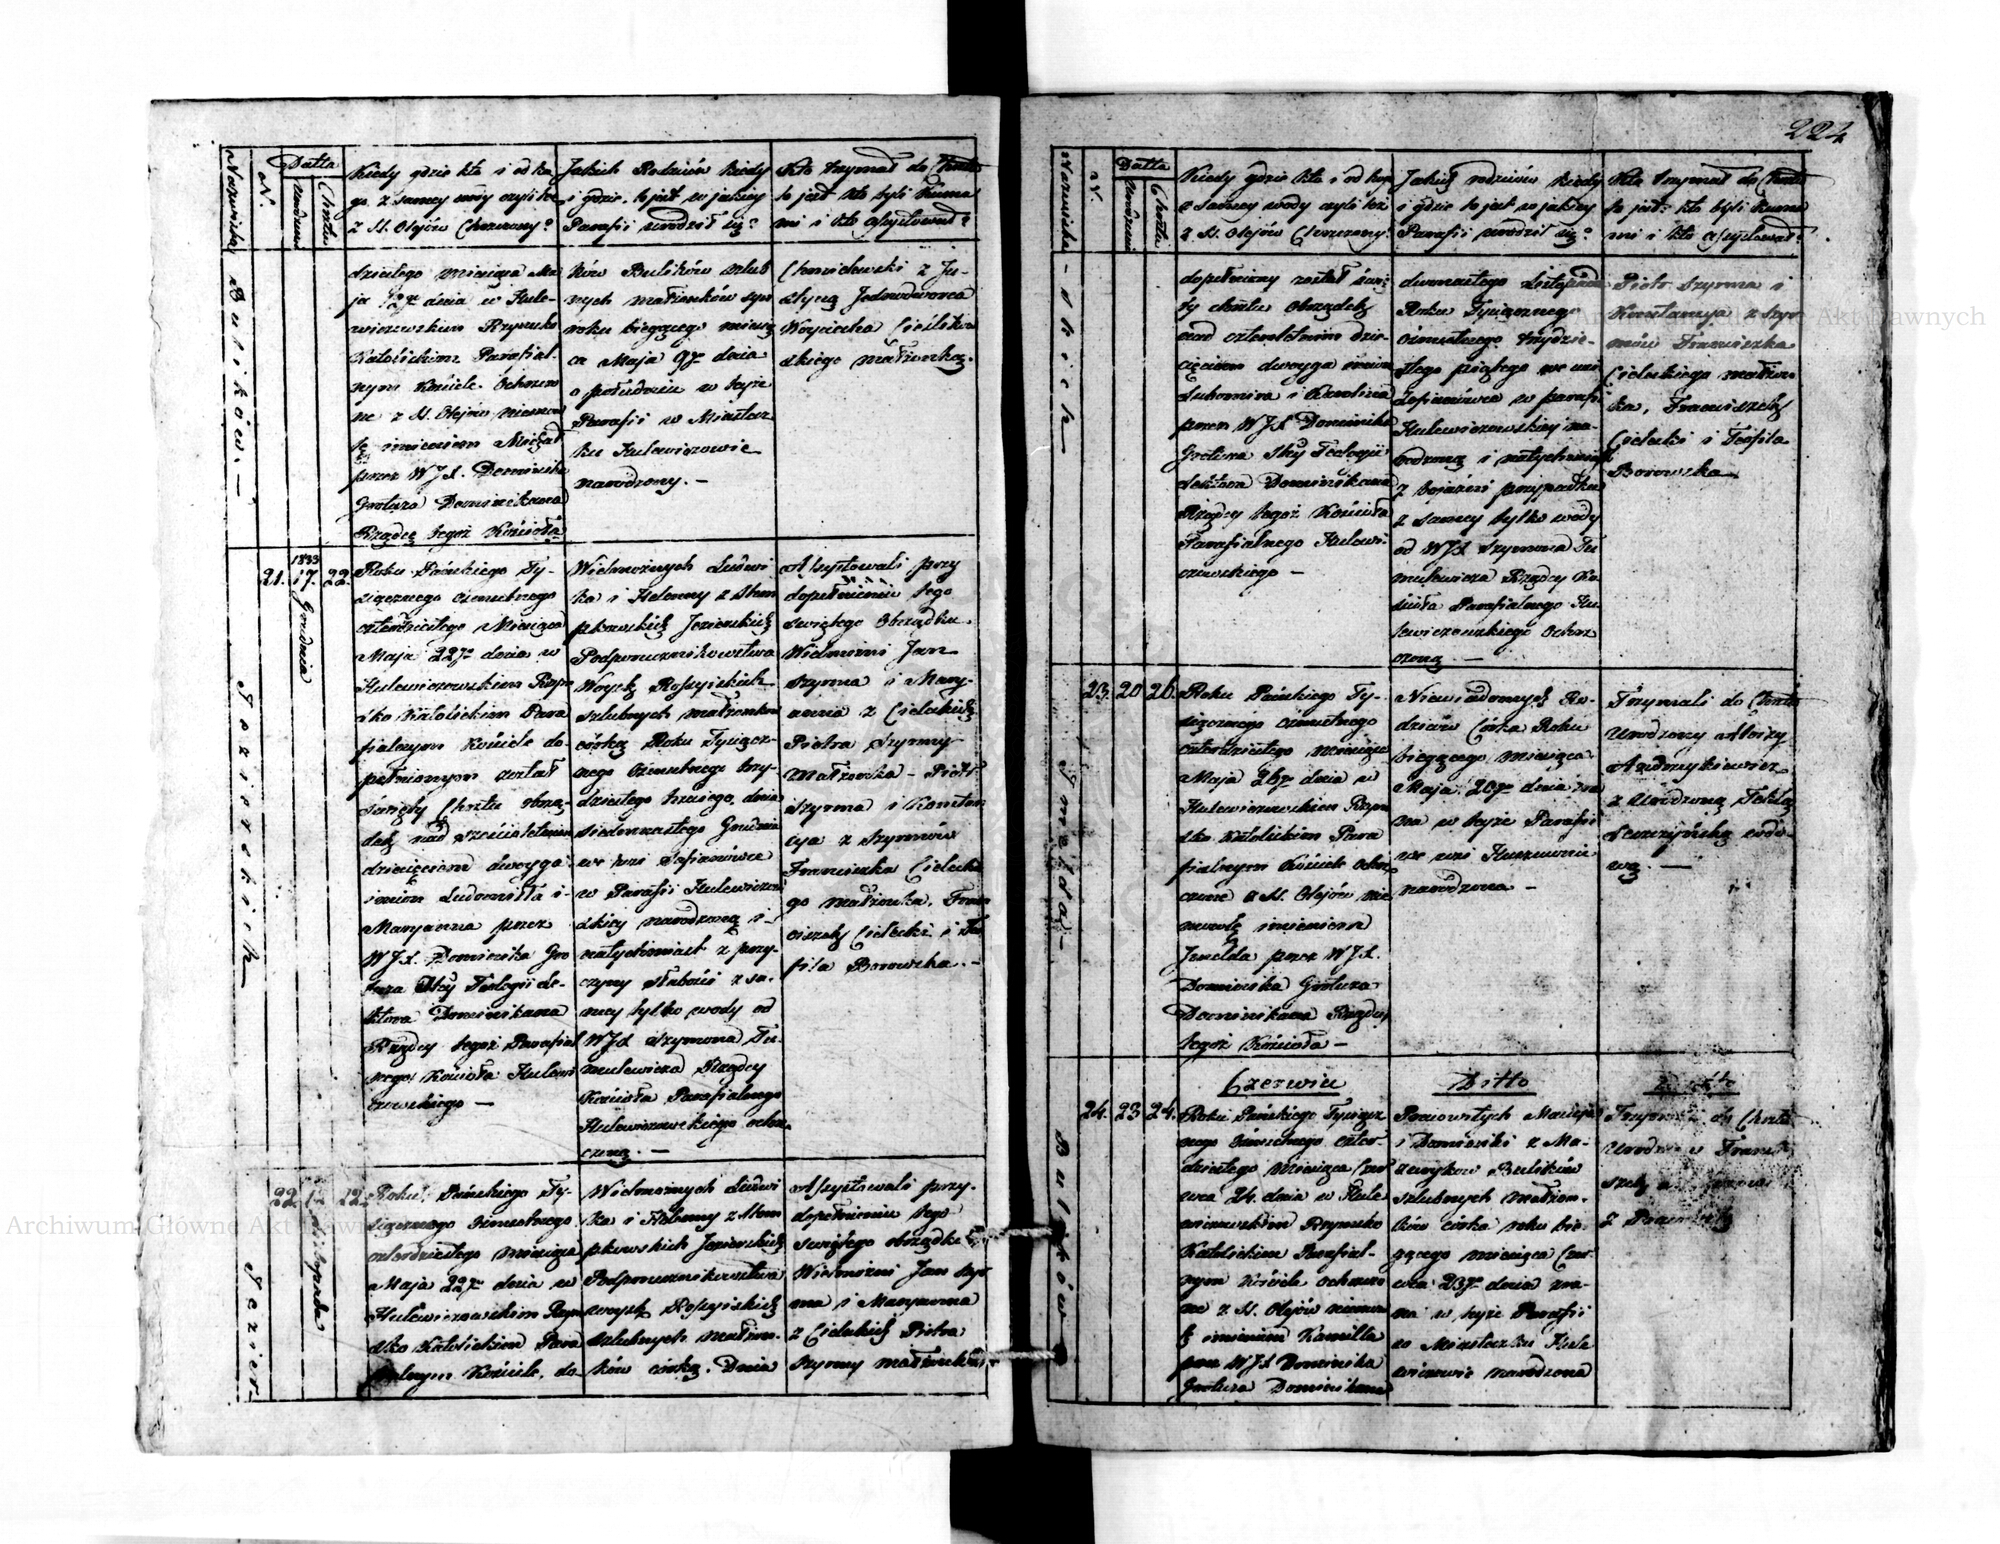 Nazwiska
N.
Datta
Urodzin
Chrztu
Kiedy gdzie kto i od ko
go z samey wody czyli też
z SS. Olejów Chrzczony?
Jakich Rodziców kiedy
i gdzie, to jest w jakiey
Parafii urodził się?
Kto trzymał do Chrztu
to jest kto byli Kuma
mi i kto assystował?
Bulików. —
dziestego miesiąca Ma
ja dnia w Hule-
wiczowskim Rzymsko
Katolickim Parafial-
nym Kościele Ochrzczo
ne z SS. Olejów niemow
lę imieniem Michał
przez W JX. Dominika
Grotuza Dominikana
Rządcę tegoż Kościoła
ków Bulików szlub
nych małżonków syn
roku bieżącego miesią
ca Maja 9go dnia
o południu w teyże
Parafii w Miastecz
ku Hulewiczowie
narodzony. —
Chmielewski z Ju-
styną Jednodworca
Woyciecha Cieślikow
skiego małżonką.
Jezierskich
21.
1833
17. Grudnia
22.
Roku Pańskiego Ty-
siącznego ośmsetnego
czterdziestego Miesiąca
Maja 22go dnia w
Hulewiczowskim Rzym
sko Katolickim Para
fialnym Kościele do-
pełnionym został
Święty Chrztu obrzą-
dek nad sześcioletniem
dziecięciem dwoyga
imion Ludomiła i
Maryanna przez
W JX. Dominika Gro
tuza Stey Teologii Le-
ktora Dominikana
Rządcy tegoż Parafial
nego Kościoła Hulewi
czowskiego —
Wielmożnych Ludwi
ka i Helenny z Stem
pkowskich Jezierskich
Podporucznikowstwa
Woysk Rossyiskich
szlubnych małżonków
córkę Roku Tysiącz-
nego Ośmsetnego trzy-
dziestego trzeciego, dnia
siedmnastego Grudnia
we wsi Zofianówce
w Parafii Hulewiczow
skiey narodzoną i
natychmiast z przy-
czyny słabości z sa-
mey tylko wody od
W JX Szymona Tu-
mulewicza Rządcy
Kościoła Parafialnego
Hulewiczowskiego ochrz-
czoną. —
Assystowali przy
dopełnieniu tego
świętego Obrządku
Wielmożni Jan
Szyrma i Mary-
anna z Cieleckich
Piotra Szyrmy
Małżonka — Piotr
Szyrma i Konstan
cya z Szyrmów
Franciszka Cieleckie
go małżonka, Fran
ciszek Cielecki i Teo
fila Borowska. —
Jezier-
22.
12. Listopada
22.
Roku Pańskiego Ty-
siącznego Ośmsetnego
czterdziestego miesiąca
Maja 22go dnia w
Hulewiczowskim Rzym
sko Katolickim Para
fialnym Kościele, do-
Wielmożnych Ludwi
ka i Helenny z Stem
pkowskich Jezierskich
Podporucznikowstwa
woysk Rossyiskich
szlubnych małżon-
ków córkę. Dnia
Assystowali przy-
dopełnieniu tego
świętego obrządku
Wielmożni Jan Szyr
ma i Maryanna
z Cieleckich Piotra
Szyrmy małżonka
224
Nazwiska
N.
Datta
Urodzin
Chrztu
Kiedy gdzie kto i od kogo
z samey wody czyli też
z SS. Olejów Chrzczony?
Jakich rodziców kiedy
i gdzie to jest w jakiey
Parafii urodził się?
Kto trzymał do Chrztu
to jest: kto byli Kuma
mi i kto assystował?
-skich
dopełniony został świę
ty chrztu Obrządek
nad czteroletnim dzie-
cięciem dwoyga imion
Lubomira i Karolina
przez W JX Dominika
Grotuza Stey Teologii
Lektora Dominikana
Rządcy tegoż Kościoła
Parafialnego Hulewi-
czowskiego —
dwunastego Listopada
Roku Tysiącznego
Ośmsetnego trzydzie-
stego piątego we wsi
Zofianówce w parafii
Hulewiczowskiey na-
rodzoną i natychmiast
z bojaźni przypadku
z samey tylko wody
od W JX Szymona Tu
mulewicza Rządcy Ko
ścioła Parafialnego Hu
lewiczowskiego Ochrz
czoną —
Piotr Szyrma i
Konstancya z Szyr
mów Franciszka
Cieleckiego małżon
ka, Franciszek
Cielecki i Teofila
Borowska
Jmelda —
23.
20
26.
Roku Pańskiego Ty-
siącznego ośmsetnego
czterdziestego miesiąca
Maja 26go dnia w
Hulewiczowskim Rzym
sko Katolickim Para
fialnym Kościele Ochrz
czone z SS. Olejów nie
mowlę imieniem
Jmelda przez W JX.
Dominika Grotuza
Dominikana Rządcę
tegoż Kościoła —
Niewiadomych Ro-
dziców Córka Roku
bieżącego miesiąca
Maja 20go dnia zna
na w teyże Parafii
we wsi
narodzona —
Trzymali do Chrztu
Urodzony Aloizy
Andrzykiewicz
z Urodzoną Teklą
Leszczyńską wdo-
wą. —
Czerwiec
Ditto
Ditto
Bulików
24.
23
24.
Roku Pańskiego Tysiącz
nego Ośmsetnego czter
dziestego miesiąca Czer
wca 24. dnia w Hule
wiczowskim Rzymsko
Katolickim Parafial-
nym Kościele ochrzczo
ne z SS. Olejów niemow
lę imieniem Kamilla
przez W JX Dominika
Grotuza Dominikana
Pracowitych Macieja
i Dominiki z Ma-
zuryków Bulików
szlubnych małżon-
ków córka roku bie-
żącego miesiąca Czer-
wca 23go dnia zna-
na w teyże Parafii
w Miasteczku Hule
wiczowie narodzona
Trzymali do Chrztu
Urodzony Franci-
szek
z
Archiwum Główne Akt Dawnych
Archiwum Główne Akt Dawnych